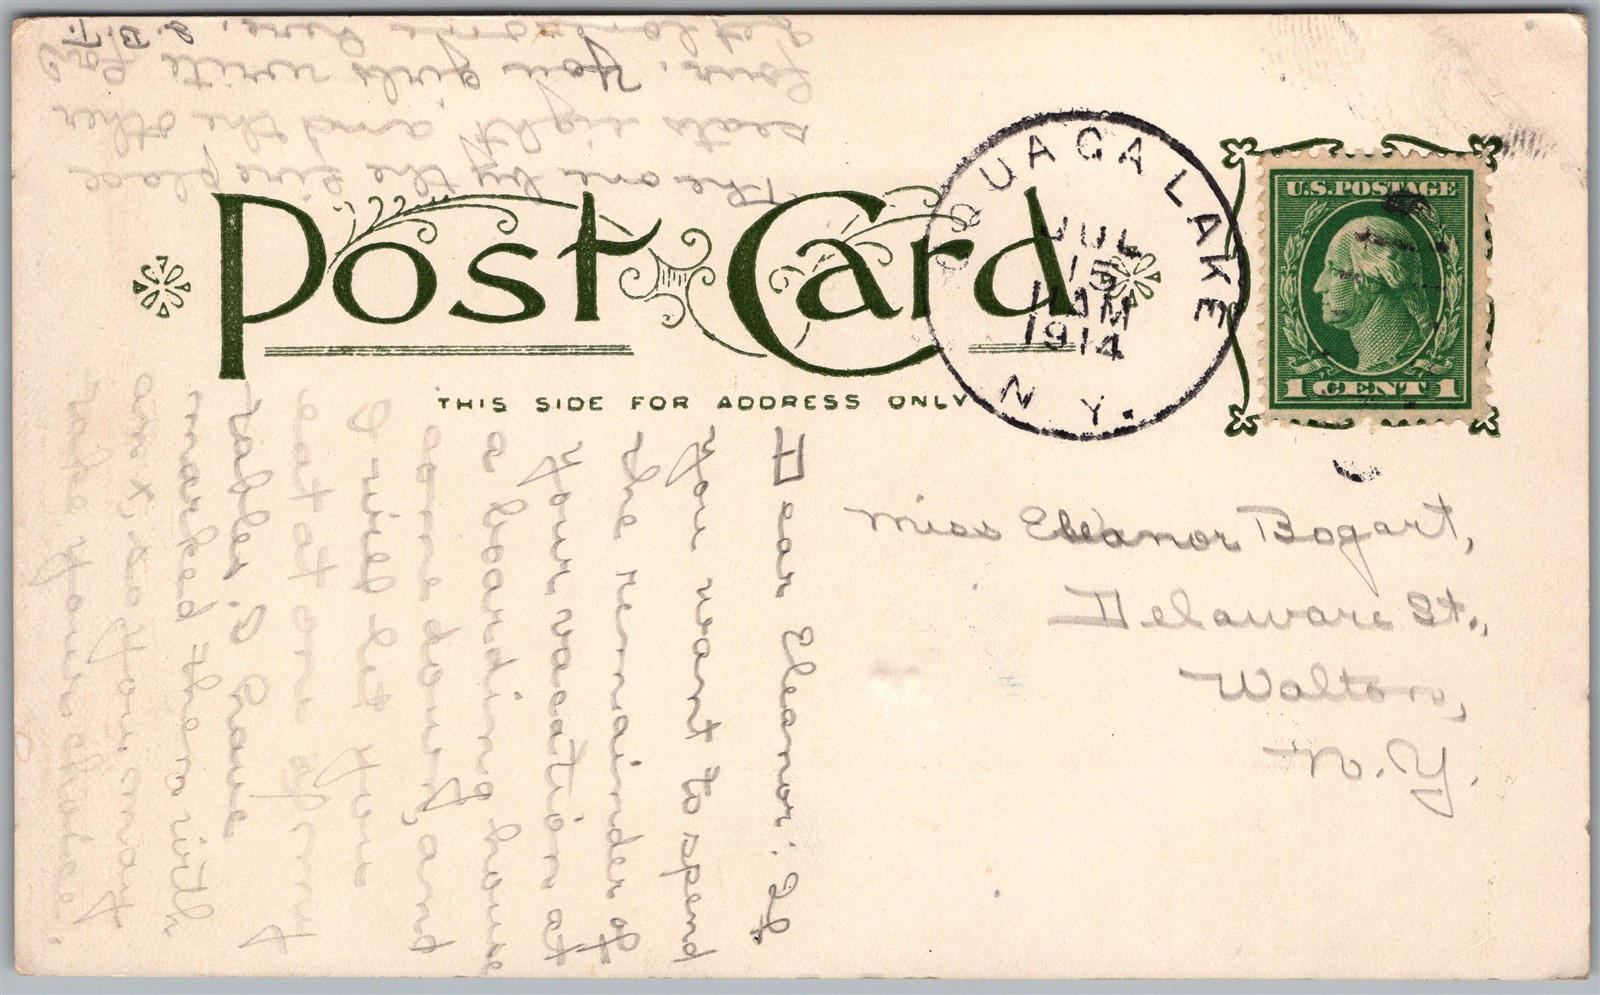 Post Card
THIS SIDE FOR ADDRESS ONLY
OQUAGA LAKE
JUL
15
11 AM
1914
N. Y.
U.S. POSTAGE
1 CENT 1
Miss Eleanor Bogart,
Delaware St.,
Walton,
N. Y.
Dear Eleanor: If
you want to spend
the remainder of
your vacation at
a boarding house
come down, and
I will let you
eat at one of my
tables. I have
marked them with
an x, so you may
take your choice.
The one by the fire place
seats eight and the other
four. You girls write for
get lonesome here.